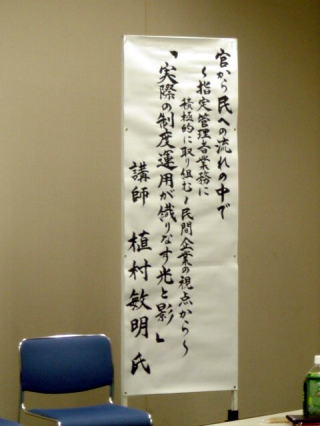 官から民への流れの中で
～指定管理者業務に
積極的に取り組む民間企業の視点から～
「実際の制度運用が織りなす光と影」
講師 植村敏明氏